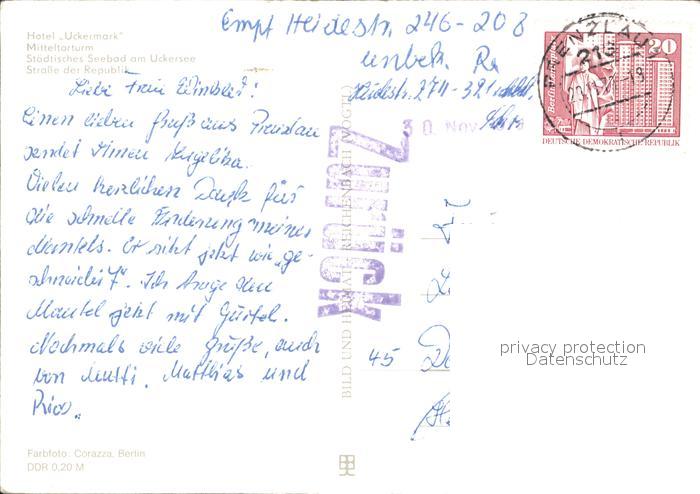 Hotel „Uckermark“
Mitteltorturm
Städtisches Seebad am Uckersee
Straße der Republik
Liebe Frau
Einen lieben Gruß aus Prenzlau
sendet Ihnen Angelika.
Vielen herzlichen Dank für
die schnelle Änderung meines
Mantels. Er sitzt jetzt wie „ge-
schneidert“. Ich trage den
Mantel jetzt mit Gürtel.
Nochmals viele Grüße, auch
von Mutti, Matthias und
Rico.
Farbfoto: Corazza, Berlin
DDR 0,20 M
BILD UND HEIMAT REICHENBACH (VOGTL)
Zurück
30. Nov.
Empf Heidestr. 246-208
unbek.
Heidestr. 274-321
PRENZLAU
213
20
DEUTSCHE DEMOKRATISCHE REPUBLIK
45 De
privacy protection
Datenschutz